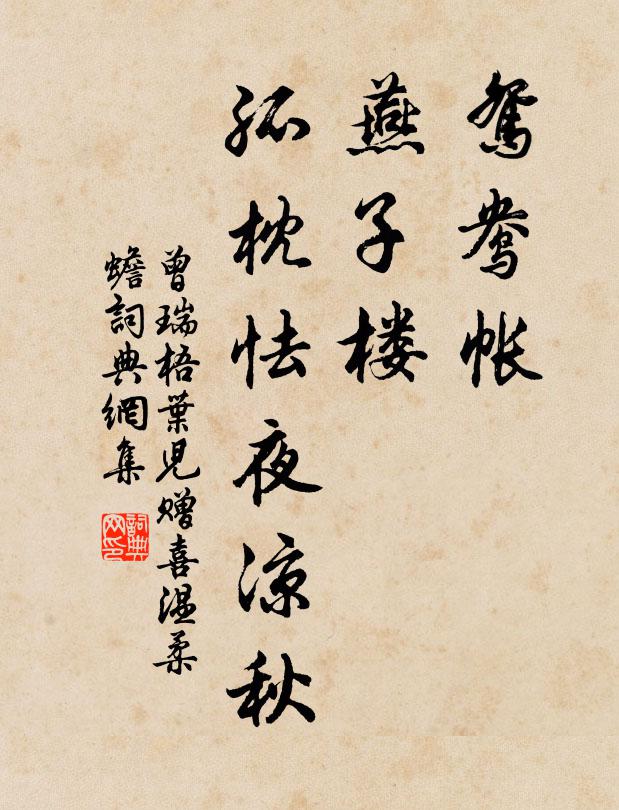 鸳鸯帐
燕子楼
孤枕怯夜凉秋
曾瑞梧葉児赠喜温柔
蟾詞典網集
詞典网印